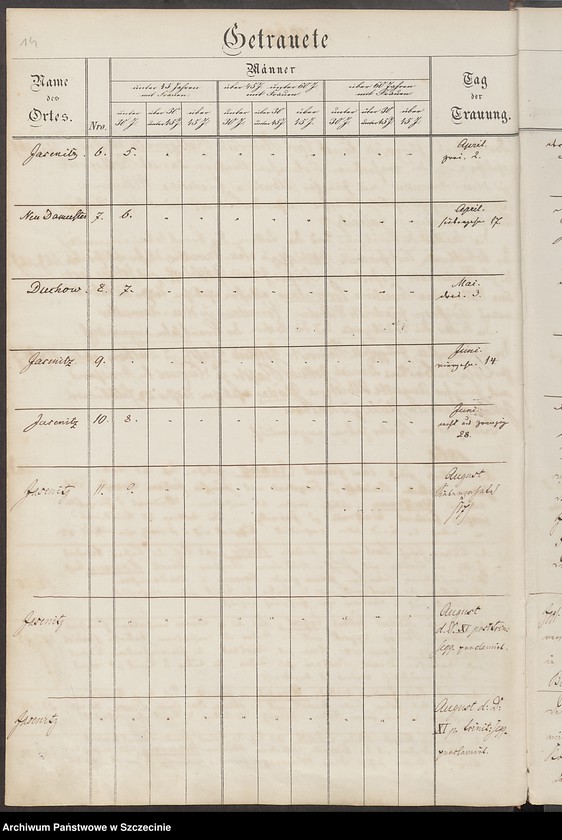 14
Getrauete
Name
des
Ortes.
Nro.
Männer
unter 45 Jahren
mit Frauen
über 45 J. unter 60 J.
mit Frauen
über 60 Jahren
mit Frauen
unter
30 J.
über 30
unter 45 J.
über
45 J.
unter
30 J.
über 30
unter 45 J.
über
45 J.
unter
30 J.
über 30
unter 45 J.
über
45 J.
Tag
der
Trauung.
Jasenitz 6. 5. April
2.
7. 6. April.
17.
Duchow. 8. 7. Mai.
drei. 3.
Jasenitz 9. Juni.
vierzehn. 14
Jasenitz 10. 8. Juni
acht und zwanzig
28.
Jasenitz 11. 9. August
(17)
Jasenitz August
d. D. XI post trin.
proclamirt.
Jasenitz August d. D.
XI p. trinit.
proclamirt.
Archiwum Państwowe w Szczecinie